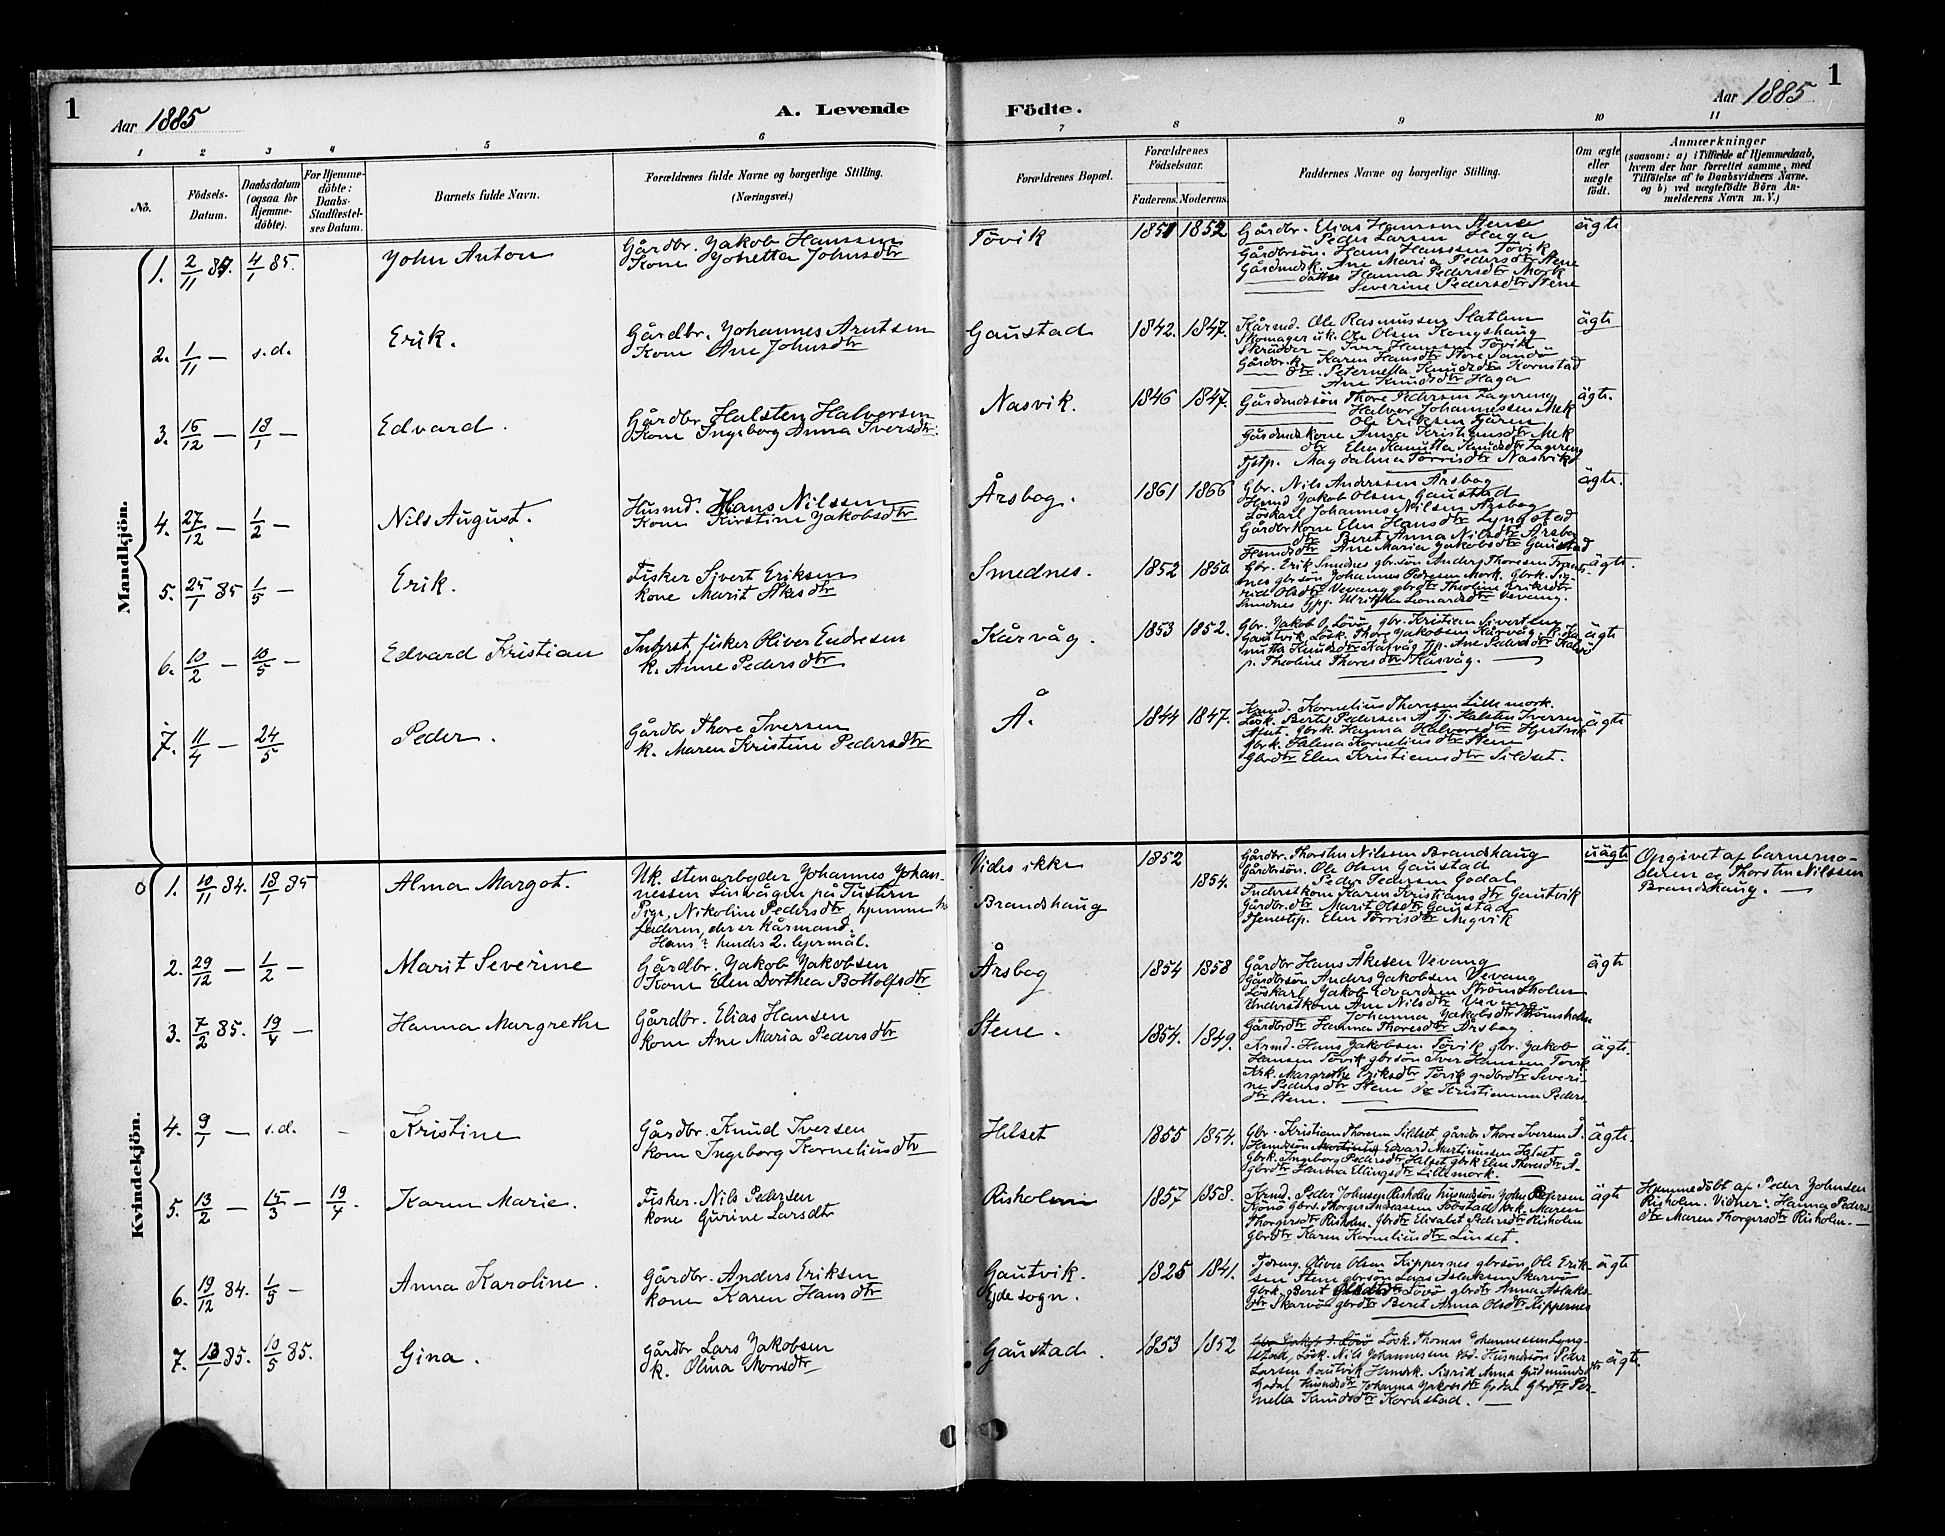 1
Aar 1885
A. Levende
Födte.
Aar 1885
1
1 2 3 4 5 6 7 8 9 10 11
No.
Födsels-
Datum.
Daabsdatum
(ogsaa for
Hjemme-
döbte).
For Hjemme-
döbte:
Daabs-
Stadfæstel-
ses Datum.
Barnets fulde Navn.
Forældrenes fulde Navne og borgerlige Stilling.
(Næringsvei.)
Forældrenes Bopæl.
Forældrenes
Födselsaar.
Faderens. Moderens.
Faddernes Navne og borgerlige Stilling.
Om ægte
eller
uægte
födt.
Anmærkninger
(saasom: a) i Tilfælde af Hjemmedaab,
hvem der har forrettet samme, med
Tilföielse af to Daabsvidners Navne.
og b) ved uægtefödte Börn An-
melderens Navn m. V.)
Mandkjön.
1. 2/11 84. 4/1 85. John Anton
Gårdbr. Jakob Hanssen
Kone Jonetta Johnsdtr
Tövik 1851 1852
Gårdbr. Elias Hanssen Stene
Peder Larsen Haga
Gårdbrsön. Hans Hanssen Tövik
Gårdmdsk. Ane Maria Pedersdtr Stene
datter Hanna Pedersdtr Mork
Severine Pedersdtr Stene
ägte
2. 1/11 — s.d. Erik.
Gårdbr. Johannes Arntsen
Kone Ane Johnsdtr
Gaustad 1842. 1847.
Kårmd. Ole Rasmussen Slatlem
Skomager uk. Ole Olsen Kongshaug
Skrädder Iver Hanssen Tövik
Gårdbr.k. Karen Hansdtr Store Sandö
dtr. Peternella Knudsdtr Kornstad
Ane Knudsdtr Haga
ägte
3. 16/12 — 18/1 — Edvard.
Gårdbr Halsten Halvorsen
Kone Ingeborg Anna Iversdtr.
Nasvik. 1846 1847.
Gårdmdssön Thore Pedersen Fagereng
Halvor Johannessen Mek
Ole Eriksen
Gårdmdskone Anna Kristiansdtr Mek
dtr Elen Knudsdtr Fagereng
Tjstp. Magdalena Törrisdtr Nasvik
ägte.
4. 27/12 — 1/2 — Nils August.
Husmd. Hans Nilssen
Kone Kirstine Jakobsdtr
Årsbog. 1861 1866
Gbr. Nils Anderssen Årsbog
Hsmd Jakob Olsen Gaustad
Löskarl Johannes Nilsen Årsbog
Gårdbrkone Elen Hansdtr Lyngstad
dtr Beret Anna Nilsdtr Årsbog
Hsmdsdtr Ane Maria Jakobsdtr Gaustad
ägte.
5. 25/1 85 1/5 — Erik.
Fisker Sivert Eriksen
kone Marit Åkesdtr
Smednes. 1852 1850
Gbr. Erik Smednes gbrsön Anders Thoresen
nes gbrsön Johannes Pedersen Mork. Gbrk. Sig-
rid Olsdtr Vevang gbrdtr Theoline Eriksdtr
Smednes Leonardsdtr Vevang.
ägte.
6. 10/2 — 10/5 — Edvard Kristian
Inderst, fisker Oliver Endresen
k. Anne Pedersdtr
Kårvåg. 1853 1852.
Gbr. Jakob O. Lövö, gbr. Kristian Sivertsen
Gautvik, Lösk. Thore Jakobsen Kårvåg.
Knudsdtr Kårvåg Tjp. Ane Pedersdtr
p. Theoline Thoresdtr Kårvåg. —
ägte
7. 11/4 — 24/5 Peder.
Gårdbr Thore Iversen
k. Maren Kristine Pedersdtr
Å. 1844 1847.
Kornelius Thoresen Lillemork.
Lösk. Berte Pedersen Å Tj. Halsten Iversen
Gbrk. Hanna Halvorsdtr Hjertvik
Gbrk. Halena Korneliusdtr Stene
Gbrdtr Elen Kristiansdtr Sildset.
ägte
Kvindekjön.
1. 10/11 84. 18/1 85 Alma Margot.
Uk. stenarbeider Johannes Johan-
nessen Linvågen på Tustern
Pige, Nikoline Pedersdtr, hjemme hos
faderen, der er kårmand.
Hans ? hendes 2. leiermål.
Vides ikke 1852
Brandshaug 1854.
Gårdbr. Thorsten Nilssen Brandshaug
Gårdbrsön. Ole Olsen Gaustad
Peder Pedersen Godal
Inderstkone Karen Kristiansdtr Gautvik
Gårdbr.dtr Marit Olsdtr Gaustad
Tjenestep. Elen Törrisdtr Angvik
uägte
Opgivet af barnemo-
deren og Thorsten Nilssen
Brandshaug. —
2. 29/12 — 1/2 — Marit Severine
Gårdbr. Jakob Jakobsen
Kone Elen Dorthea Bottolfsdtr
Årsbog 1854 1858
Gårdbr Hans Åkesen Vevang
Gårdbrsön Anders Jakobsen Vevang
Löskarl Jakob Edvardsen Strömsholm
Inderstkone Ane Nilsdtr Vevang
Johanna Jakobsdtr Strömsholm
Gårdbrdtr Hanna Thoresdtr Årsbog
ägte
3. 7/2 85. 19/4 — Hanna Margrethe
Gårdbr. Elias Hansen
kone Ane Maria Pedersdtr
Stene. 1854. 1849.
Hans Jakobsen Tövik gbr. Jakob
Hansen Tövik gbrsön Iver Hanssen Tövik
Margrethe Eriksdtr Tövik gbrdtr Severi-
ne Pedersdtr Stene do Kristianna Peders-
dtr Stene. —
ägte.
4. 9/1 — s.d. - Kristine
Gårdbr. Knud Iversen
kone Ingeborg Korneliusdtr
Helset 1855 1854.
Gbr. Kristian Thoresen Sildset, gårdbr Thore Iversen Å.
Hsmdssön Edvard Martinussen Helset
Gbrk. Ingeborg Pedersdtr Helset gbrk Elen Thoresdtr Å.
gbrdtr Hanna Ellingsdtr Lillemork.
ägte.
5. 13/2 — 15/3 — 19/4. Karen Marie.
Fisker. Nils Pedersen
kone Gurine Larsdtr
Risholm 1857 1858.
Peder Johnsen Risholm husmdssön John Pedersen
gbrs. Thorger Andersen Maren
Thorgersdtr Risholm. Gbrdtr Elisabet Pedersdtr Risholm
Gbrdtr Karen Korneliusdtr Linset.
ägte
Hjemmedöbt af Peder Johnsen
Risholm. Vidner: Hanna Peders-
dtr Maren Thorgersdtr Risholm. —
6. 19/12 84. 1/5 — Anna Karoline.
Gårdbr. Anders Eriksen
kone Karen Hansdtr
Gautvik.
Eide sogn. 1825 1841.
Oliver Olsen Kippernes gbrsön Ole Erik-
sen Stene gbrsön Lars Aslaksen Skarvö
Gbrk. Beret Lövö gbrdtr Anna Aslaks-
dtr Skarvö gbrdtr Beret Anna Olsdtr Kippernes
ägte
7. 13/1 85. 10/5 85. Gina.
Gårdbr Lars Jakobsen
k. Olina
Gaustad. 1853 1852
Gbr Jakob O. Lövö Lösk. Thomas Johannessen Lyng-
stad, Lösk. Nils Johannesen ibd. Husmdssön Peder
Larsen Gautvik Sigrid Anna Gudmundsdtr
Godal Husmdsdtr Johanna Jakobsdtr Godal Gbrdtr Per-
nella Knudsdtr Kornstad. —
ägte.